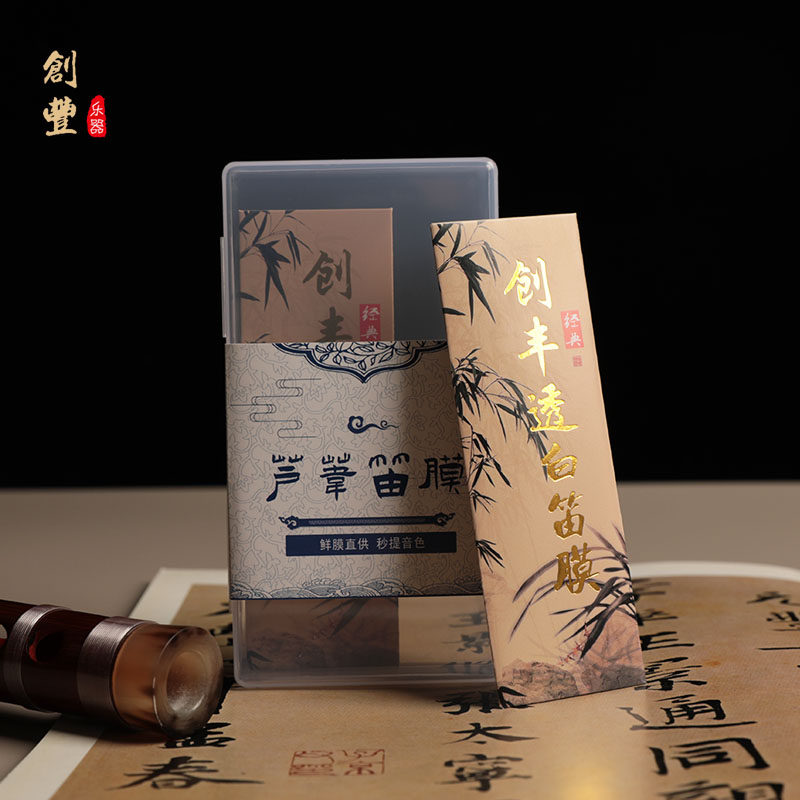 創豐
乐器
创丰
经典
芦葦笛膜
鲜膜直供 秒提音色
创丰透白笛膜
经典
春
太寧
通同